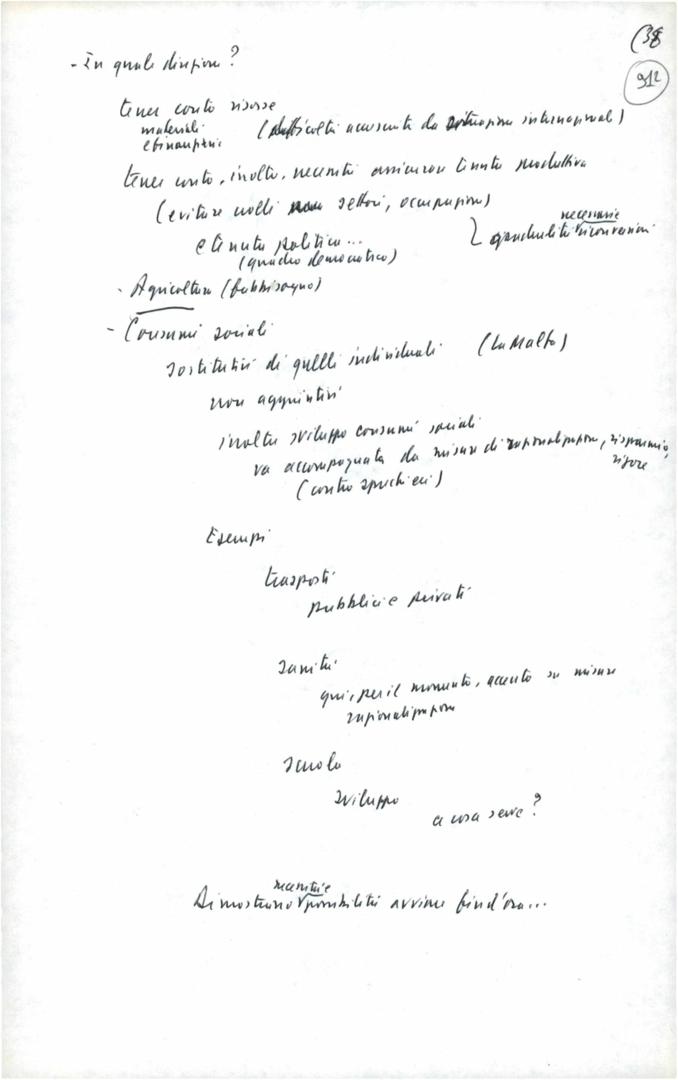 (38
912
- In quale direzione?
tener conto risorse
materiali
e finanziarie
(difficoltà accresciute da situazione internazionale)
tener conto, inoltre, necessità assicurare tenuta produttiva
(evitare crolli settori, occupazione)
necessarie
gradualità riconversioni
e tenuta politica...
(quadro democratico)
- Agricoltura (fabbisogno)
- Consumi sociali
sostitutivi di quelli individuali (La Malfa)
non aggiuntivi
inoltre sviluppo consumi sociali
va accompagnato da misure di razionalizzazione, risparmio,
rigore
(contro sprechi ecc)
Esempi
trasporti
pubblici e privati
sanità
qui, per il momento, accento su misure
razionalizzazione
scuola
sviluppo
a cosa serve?
necessità e
Dimostrano possibilità avviare fin d'ora...